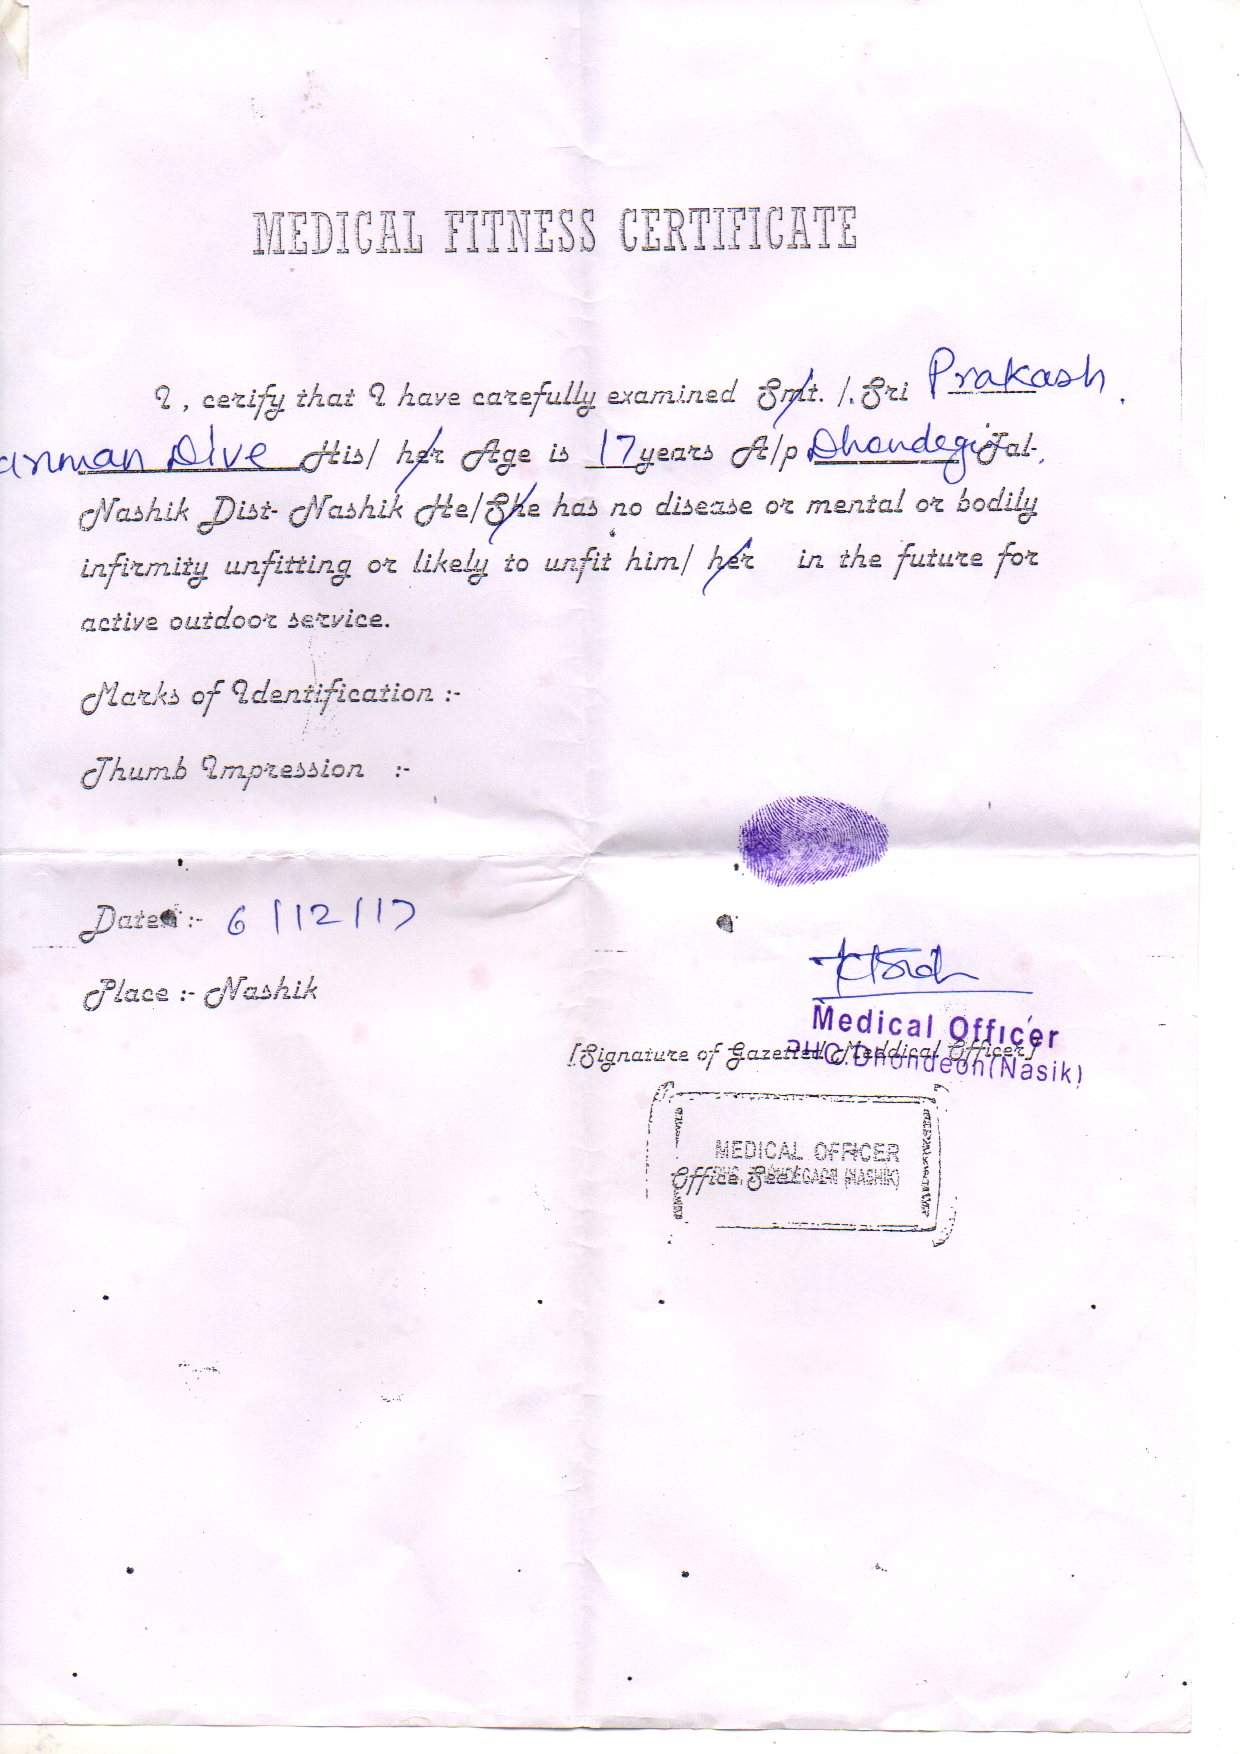 MEDICAL FITNESS CERTIFICATE
I , cerify that I have carefully examined Smt. /. Sri Prakash
anman Dive His/ her Age is 17 years A/p Dhondegi Tal-
Nashik Dist- Nashik He/She has no disease or mental or bodily
infirmity unfitting or likely to unfit him/ her in the future for
active outdoor service.
Marks of Identification :-
Thumb Impression :-
Date :- 6/12/17
Place :- Nashik
Medical Officer
[Signature of Gazetted Meddical Officer]
PHC.Dhondeon(Nasik)
MEDICAL OFFICER
Office Seal
(NASHIK)